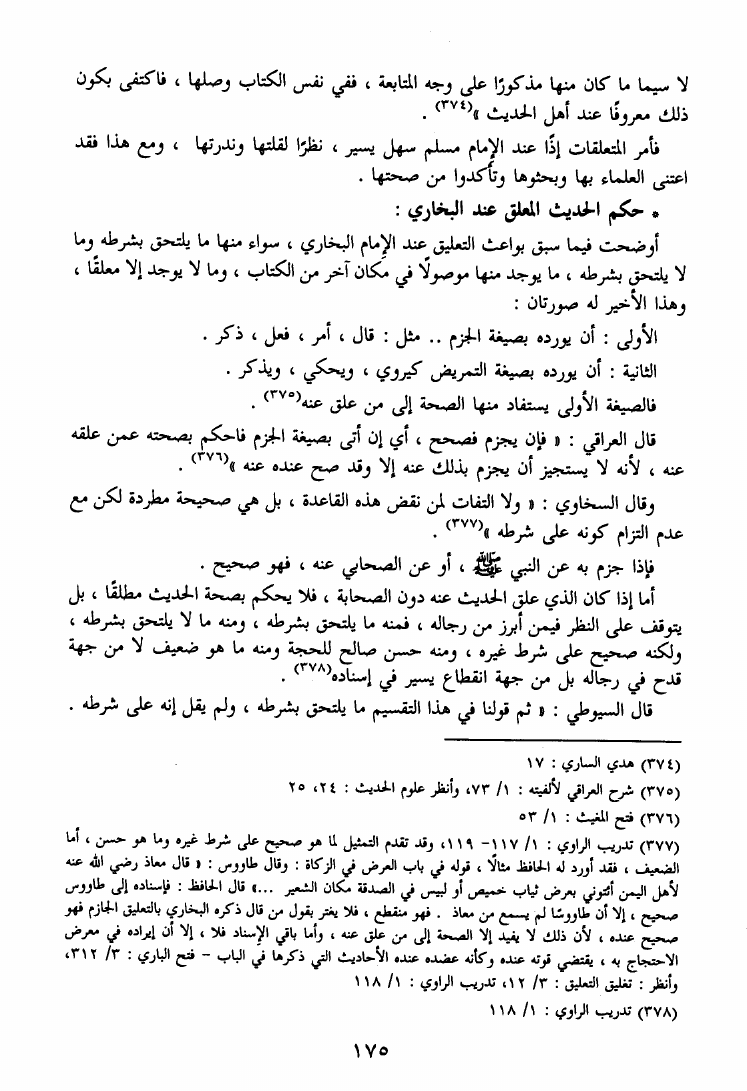 لا سيما ما كان منها مذكورًا على وجه المتابعة ، ففي نفس الكتاب وصلها ، فاكتفى بكون
ذلك معروفًا عند أهل الحديث »(٣٧٤) .
فأمر المتعلقات إذًا عند الإمام مسلم سهل يسير ، نظرًا لقلتها وندرتها ، ومع هذا فقد
اعتنى العلماء بها وبحثوها وتأكدوا من صحتها .
* حكم الحديث المعلق عند البخاري :
أوضحت فيما سبق بواعث التعليق عند الإمام البخاري ، سواء منها ما يلتحق بشرطه وما
لا يلتحق بشرطه ، ما يوجد منها موصولًا في مكان آخر من الكتاب ، وما لا يوجد إلا معلقًا ،
وهذا الأخير له صورتان :
الأولى : أن يورده بصيغة الجزم .. مثل : قال ، أمر ، فعل ، ذكر .
الثانية : أن يورده بصيغة التمريض كيروي ، ويحكي ، ويذكر .
فالصيغة الأولى يستفاد منها الصحة إلى من علق عنه(٣٧٥) .
قال العراقي : « فإن يجزم فصحح ، أي إن أتى بصيغة الجزم فاحكم بصحته عمن علقه
عنه ، لأنه لا يستجيز أن يجزم بذلك عنه إلا وقد صح عنده عنه »(٣٧٦) .
وقال السخاوي : « ولا التفات لمن نقض هذه القاعدة ، بل هي صحيحة مطردة لكن مع
عدم التزام كونه على شرطه »(٣٧٧) .
فإذا جزم به عن النبي ﷺ ، أو عن الصحابي عنه ، فهو صحيح .
أما إذا كان الذي علق الحديث عنه دون الصحابة ، فلا يحكم بصحة الحديث مطلقًا ، بل
يتوقف على النظر فيمن أبرز من رجاله ، فمنه ما يلتحق بشرطه ، ومنه ما لا يلتحق بشرطه ،
ولكنه صحيح على شرط غيره ، ومنه حسن صالح للحجة ومنه ما هو ضعيف لا من جهة
قدح في رجاله بل من جهة انقطاع يسير في إسناده(٣٧٨) .
قال السيوطي : « ثم قولنا في هذا التقسيم ما يلتحق بشرطه ، ولم يقل إنه على شرطه .
(٣٧٤) هدي الساري : ١٧
(٣٧٥) شرح العراقي لألفيته : ١/ ٧٣، وأنظر علوم الحديث : ٢٤، ٢٥
(٣٧٦) فتح المغيث : ١/ ٥٣
(٣٧٧) تدريب الراوي : ١/ ١١٧- ١١٩، وقد تقدم التمثيل لما هو صحيح على شرط غيره وما هو حسن ، أما
الضعيف ، فقد أورد له الحافظ مثالًا ، قوله في باب العرض في الزكاة : وقال طاووس : « قال معاذ رضي الله عنه
لأهل اليمن أئتوني بعرض ثياب خميص أو لبيس في الصدقة مكان الشعير ...» قال الحافظ : فإسناده إلى طاووس
صحيح ، إلا أن طاووسًا لم يسمع من معاذ . فهو منقطع ، فلا يغتر بقول من قال ذكره البخاري بالتعليق الجازم فهو
صحيح عنده ، لأن ذلك لا يفيد إلا الصحة إلى من علق عنه ، وأما باقي الإسناد فلا ، إلا أن إيراده في معرض
الاحتجاج به ، يقتضي قوته عنده وكأنه عضده عنده الأحاديث التي ذكرها في الباب - فتح الباري : ٣/ ٣١٢،
وأنظر : تغليق التعليق : ٣/ ١٢، تدريب الراوي : ١/ ١١٨
(٣٧٨) تدريب الراوي : ١/ ١١٨
١٧٥